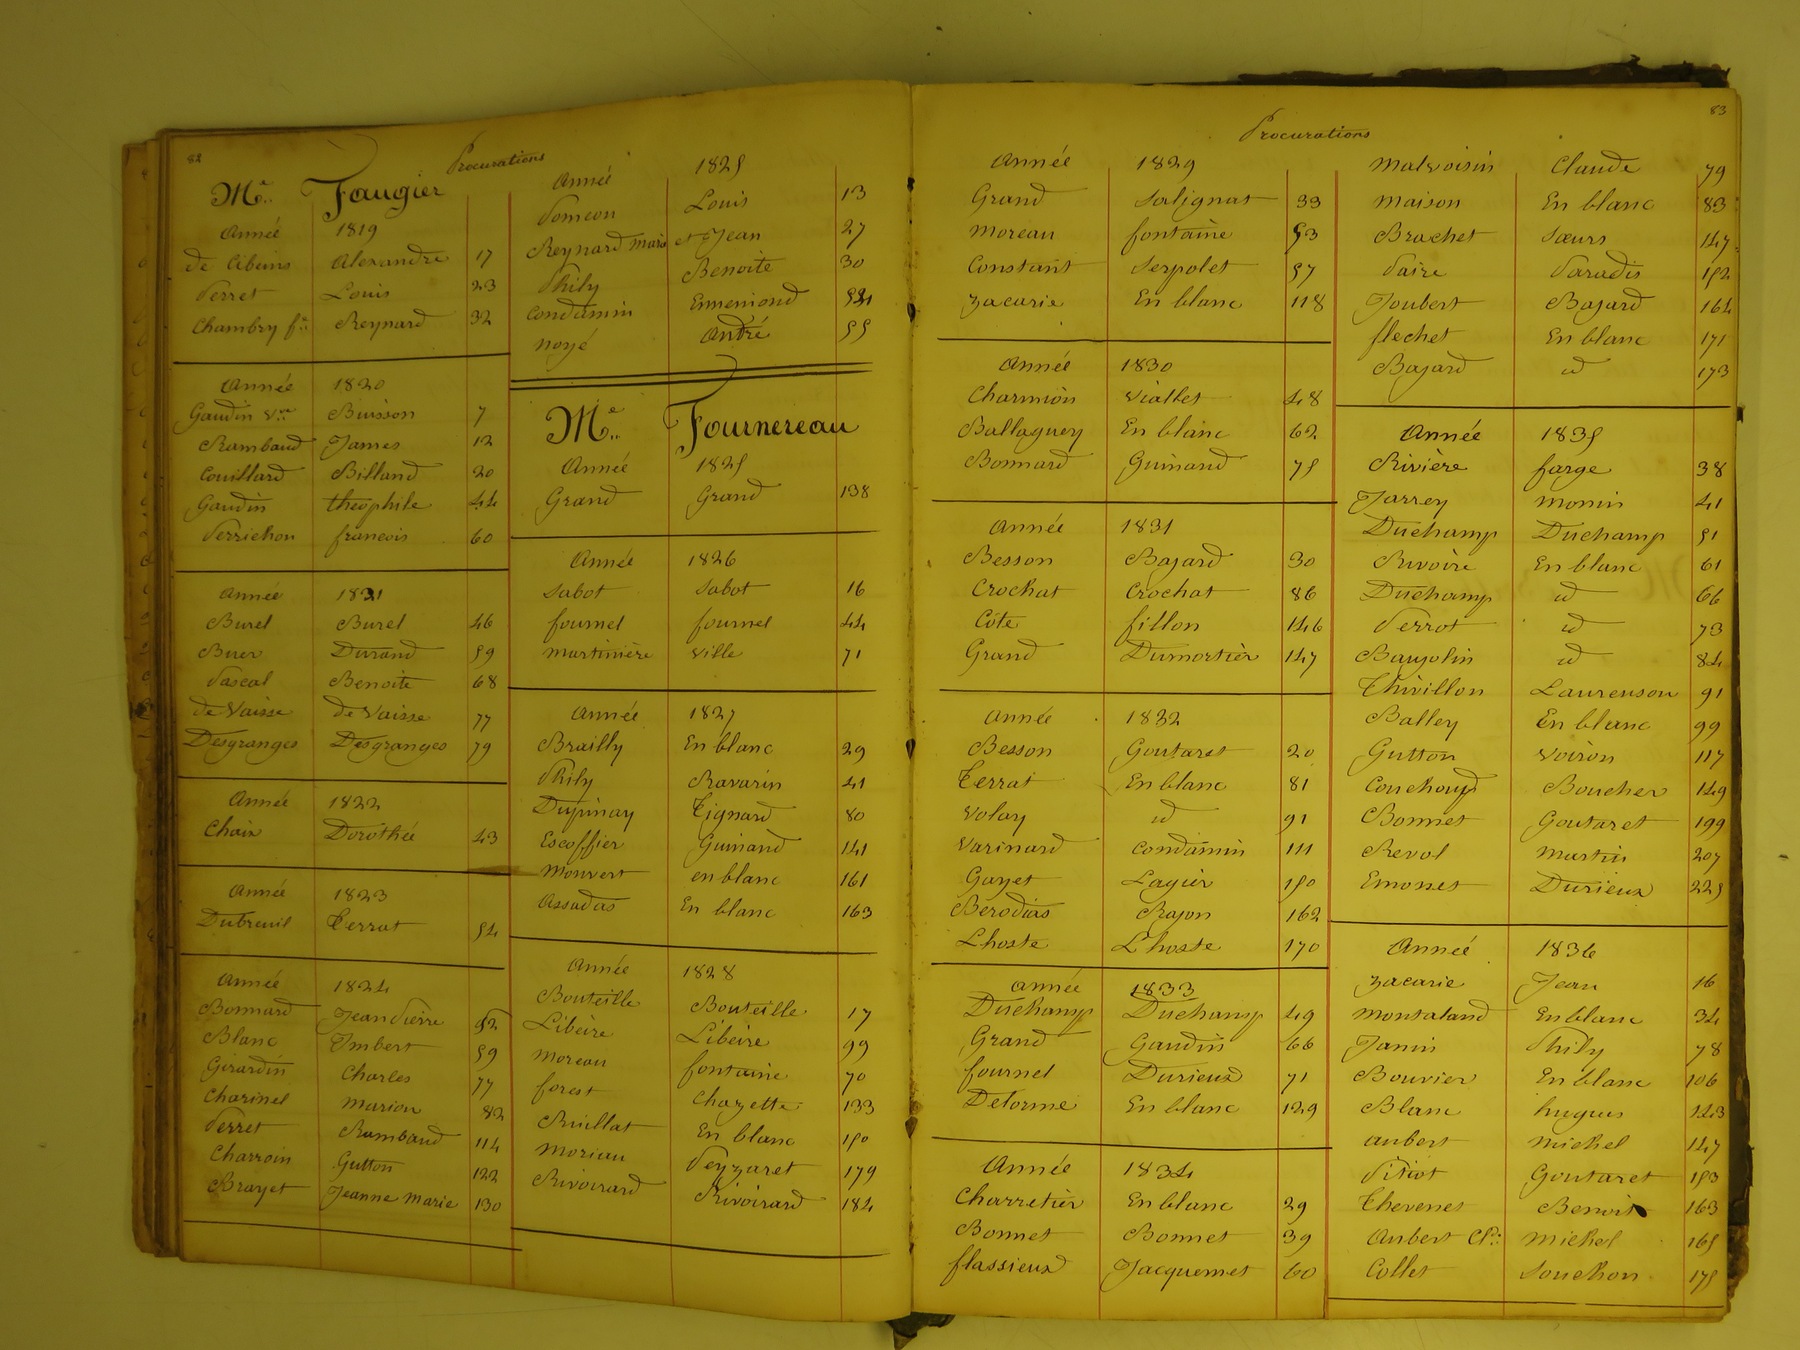 82
Procurations
Me. Faugier
Année 1819
de Cibeins Alexandre 17
Perret Louis 23
Chambry fe. Reynard 32
Année 1820
Gaudin Vve. Buisson 7
Rambaud James 12
Couillard Billand 20
Gaudin théophile 44
Perrichon francois 60
Année 1821
Burel Burel 46
Buer Durand 59
Pascal Benoite 68
de Vaisse de Vaisse 77
Desgranges Desgranges 79
Année 1822
Chaix Dorothée 43
Année 1823
Dubreuil Terrat 54
Année 1824
Bonnard Jean Pierre 52
Blanc Imbert 59
Girardin Charles 77
Charinel Marion 82
Perret Rambaud 114
Charroin Gutton 122
Brayet Jeanne Marie 130
Année 1825
Pomeon Louis 13
Reynard Marie et Jean 27
Phily Benoite 30
Condamin Ennemond 54
Noyé André 55
Me. Fournereau
Année 1825
Grand Grand 138
Année 1826
Sabot Sabot 16
fournel fournel 44
Martinière Ville 71
Année 1827
Brailly En blanc 29
Phily Ravarin 41
Dupinay Tignard 80
Escoffier Guinand 141
Monvert en blanc 161
Assadas En blanc 163
Année 1828
Bouteille Bouteille 17
Libeire Libeire 99
Moreau fontaine 70
forest Chazette 133
Ruillat En blanc 150
Moriau Peyzaret 179
Rivoirard Rivoirard 184
83
Procurations
Année 1829
Grand Salignat 33
Moreau fontaine 53
Constant Serpolet 57
Zacarie En blanc 118
Année 1830
Charmion Viallet 48
Ballaguey En blanc 62
Bonnard Guinand 75
Année 1831
Besson Bajard 30
Crochat Crochat 86
Côte fillon 146
Grand Dumortier 147
Année 1832
Besson Goutaret 20
Terrat En blanc 81
Volay id 91
Varinard Condamin 111
Gayet Lagier 150
Berodias Rajon 162
Lhoste Lhoste 170
Année 1833
Duchamp Duchamp 49
Grand Gaudin 66
fournel Durieux 71
Delorme En blanc 129
Année 1834
Charretier En blanc 29
Bonnet Bonnet 39
flassieux Jacquemet 60
Malvoisin Claude 79
Maison En blanc 83
Brachet Sœurs 147
Paire Paradis 152
Joubert Bajard 164
flechet En blanc 171
Bajard id 173
Année 1835
Rivière farge 38
Jarrey Monin 41
Duchamp Duchamp 51
Rivoire En blanc 61
Duchamp id 66
Perrot id 73
Baujolin id 84
Thivillon Laurenson 91
Balley En blanc 99
Gutton Voiron 117
Couchoud Boucher 149
Bonnet Goutaret 199
Revol Martin 207
Emonet Durieux 225
Année 1836
Zacarie Jean 16
Montaland En blanc 34
Jamin Phily 78
Bouvier En blanc 106
Blanc hugues 143
Aubert Michel 147
Pitiot Goutaret 153
Thevenet Benoit 163
Aubert Cl. Michel 165
Collet Souchon 175